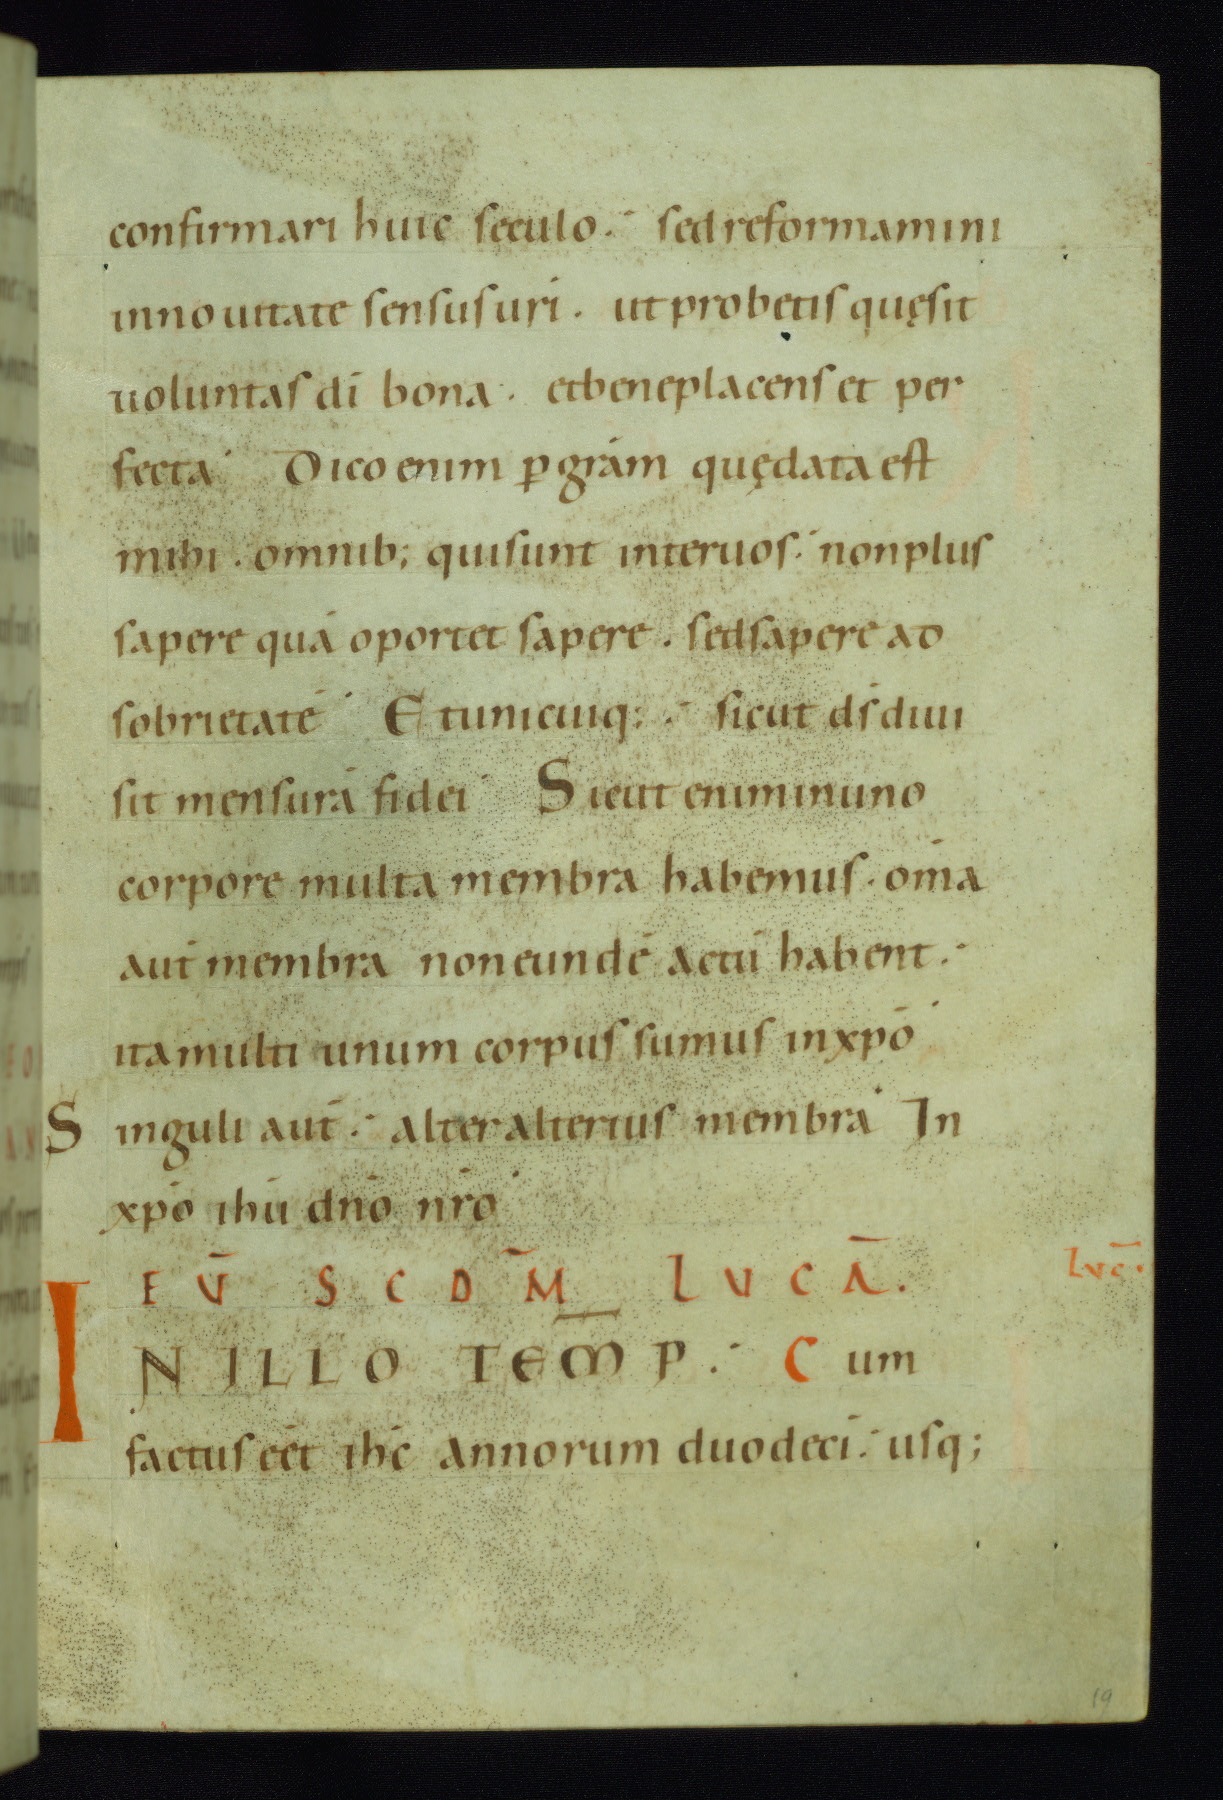 confirmari huic seculo. sed reformamini
in nouitate sensus uri. ut probetis quę sit
uoluntas dī bona. et beneplacens et per
fecta Dico enim ꝑ grām quę data est
mihi. omnib; qui sunt inter uos. non plus
sapere quā oportet sapere. sed sapere ad
sobrietatē Et unicuiq;. sicut d̄s diui
sit mensurā fidei Sicut enim in uno
corpore multa membra habemus. om̄a
aut̄ membra non eundē actū habent.
ita multi unum corpus sumus in xp̄o
Singuli aut̄. alter alterius membra In
xp̄o ih̄u dn̄o nr̄o
EV̄ SCDM̄ LVCĀ.
Luc̄.
IN ILLO TEM̄P. Cum
factus eēt ih̄c annorum duodecī. usq;
19